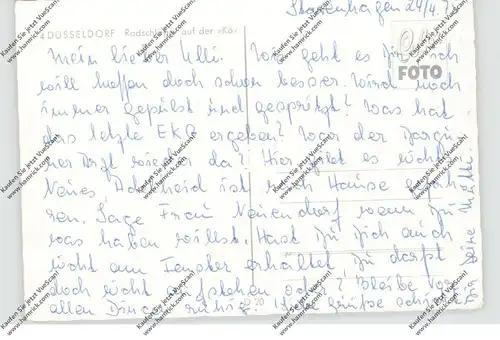 Stavenhagen 24/4.7
4 DÜSSELDORF Radschläger auf der »Kö«
FOTO
Mein lieber Ulli. Wie geht es Dir ich
will hoffen doch schon besser. Wird noch
immer gepillt und gespritzt? Was hat
das letzte EKG ergeben? War der
Arzt wieder da? Hier gibt es nichts
Neues. ist nach Hause gefah
ren. Sage Frau Neuendorf wenn Du
was haben willst. Hast Du Dich auch
nicht am Fenster erkältet Du darfst
doch nicht aufstehen oder? Bleibe vor
allen Dingen ruhig. Viele Grüße
D 20
Dir Deine Mutti
Kaufen Sie jetzt VueScan!
www.hamrick.com